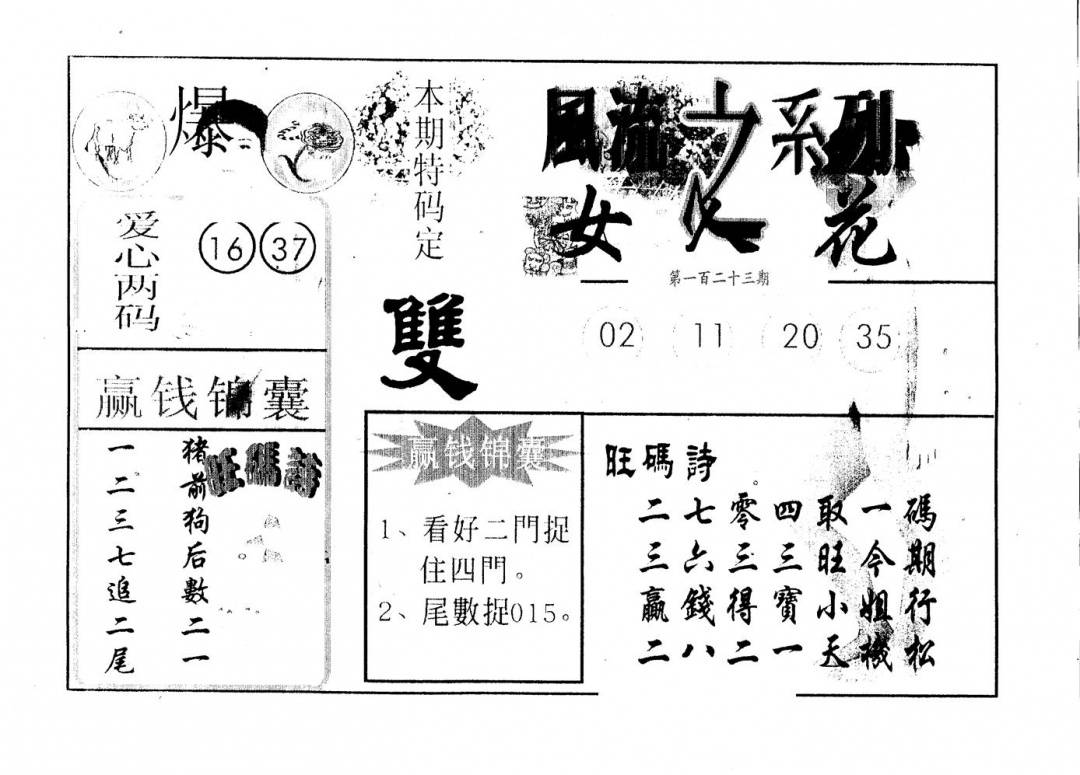 爆
本期特码定
雙
风流之系列
女人花
第一百二十三期
爱心两码
16 37
02 11 20 35
赢钱锦囊
旺碼詩
猪前狗后數二一
一二三七追二尾
赢钱锦囊
1、看好二門捉
住四門。
2、尾數捉015。
旺碼詩
二七零四取一碼
三六三三旺今期
贏錢得寶小姐行
二八二一天機松